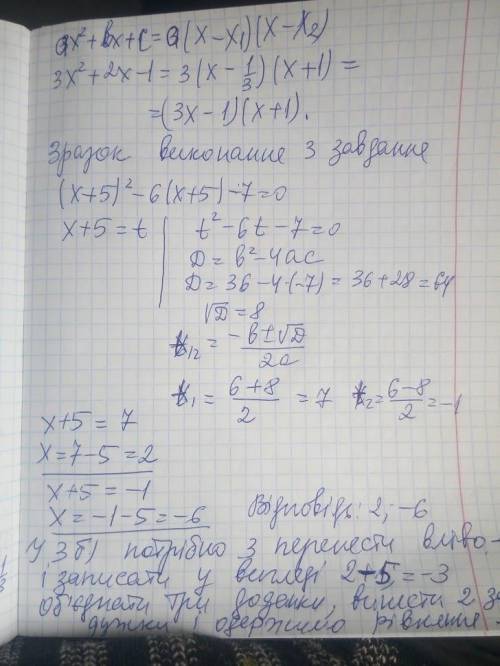 ax² + bx + c = a(x - x₁)(x - x₂)
3x² + 2x - 1 = 3(x - 1/3)(x + 1) =
= (3x - 1)(x + 1).
Зразок виконання 3 завдання
(x+5)² - 6(x+5) - 7 = 0
x + 5 = t
t² - 6t - 7 = 0
D = b² - 4ac
D = 36 - 4·(-7) = 36 + 28 = 64
√D = 8
t₁₂ = (-b ± √D)/2a
t₁ = (6+8)/2 = 7 t₂ = (6-8)/2 = -1
x + 5 = 7
x = 7 - 5 = 2
x + 5 = -1
x = -1 - 5 = -6
Відповідь: 2; -6
У 3 б) потрібно 3 перенести вліво
і записати у вигляді 2 - 5 = -3
об'єднати три доданки, винести 2 за
дужки і одержимо рівняння